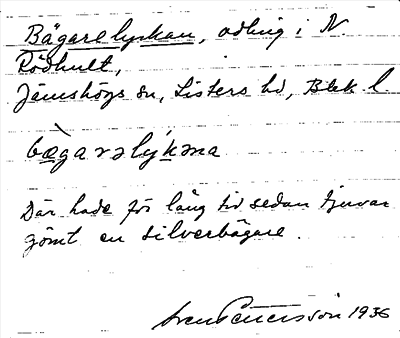 Bägarelyckan, odling i N.
Rödhult,
Jämshögs sn, Listers hd, Blek. l.
bὲgarəlýkəna
Där hade för lång tid sedan tjuvar
gömt en silverbägare.
Sven Pettersson 1936